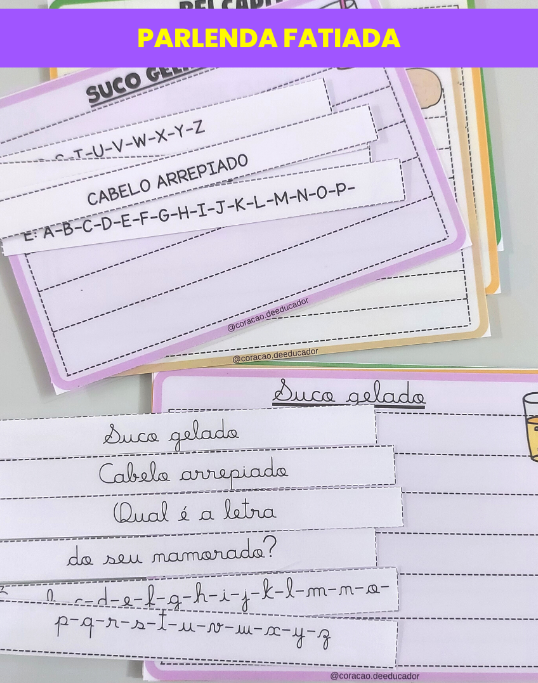 PARLENDA FATIADA
SUCO
T-U-V-W-X-Y-Z
CABELO ARREPIADO
E: A-B-C-D-E-F-G-H-I-J-K-L-M-N-O-P-
@coracao.deeducador
@coracao.deeducador
Suco gelado
Suco gelado
Cabelo arrepiado
Qual é a letra
do seu namorado?
d-e-f-g-h-i-j-k-l-m-n-o-
p-q-r-s-t-u-v-w-x-y-z
@coracao.deeducador